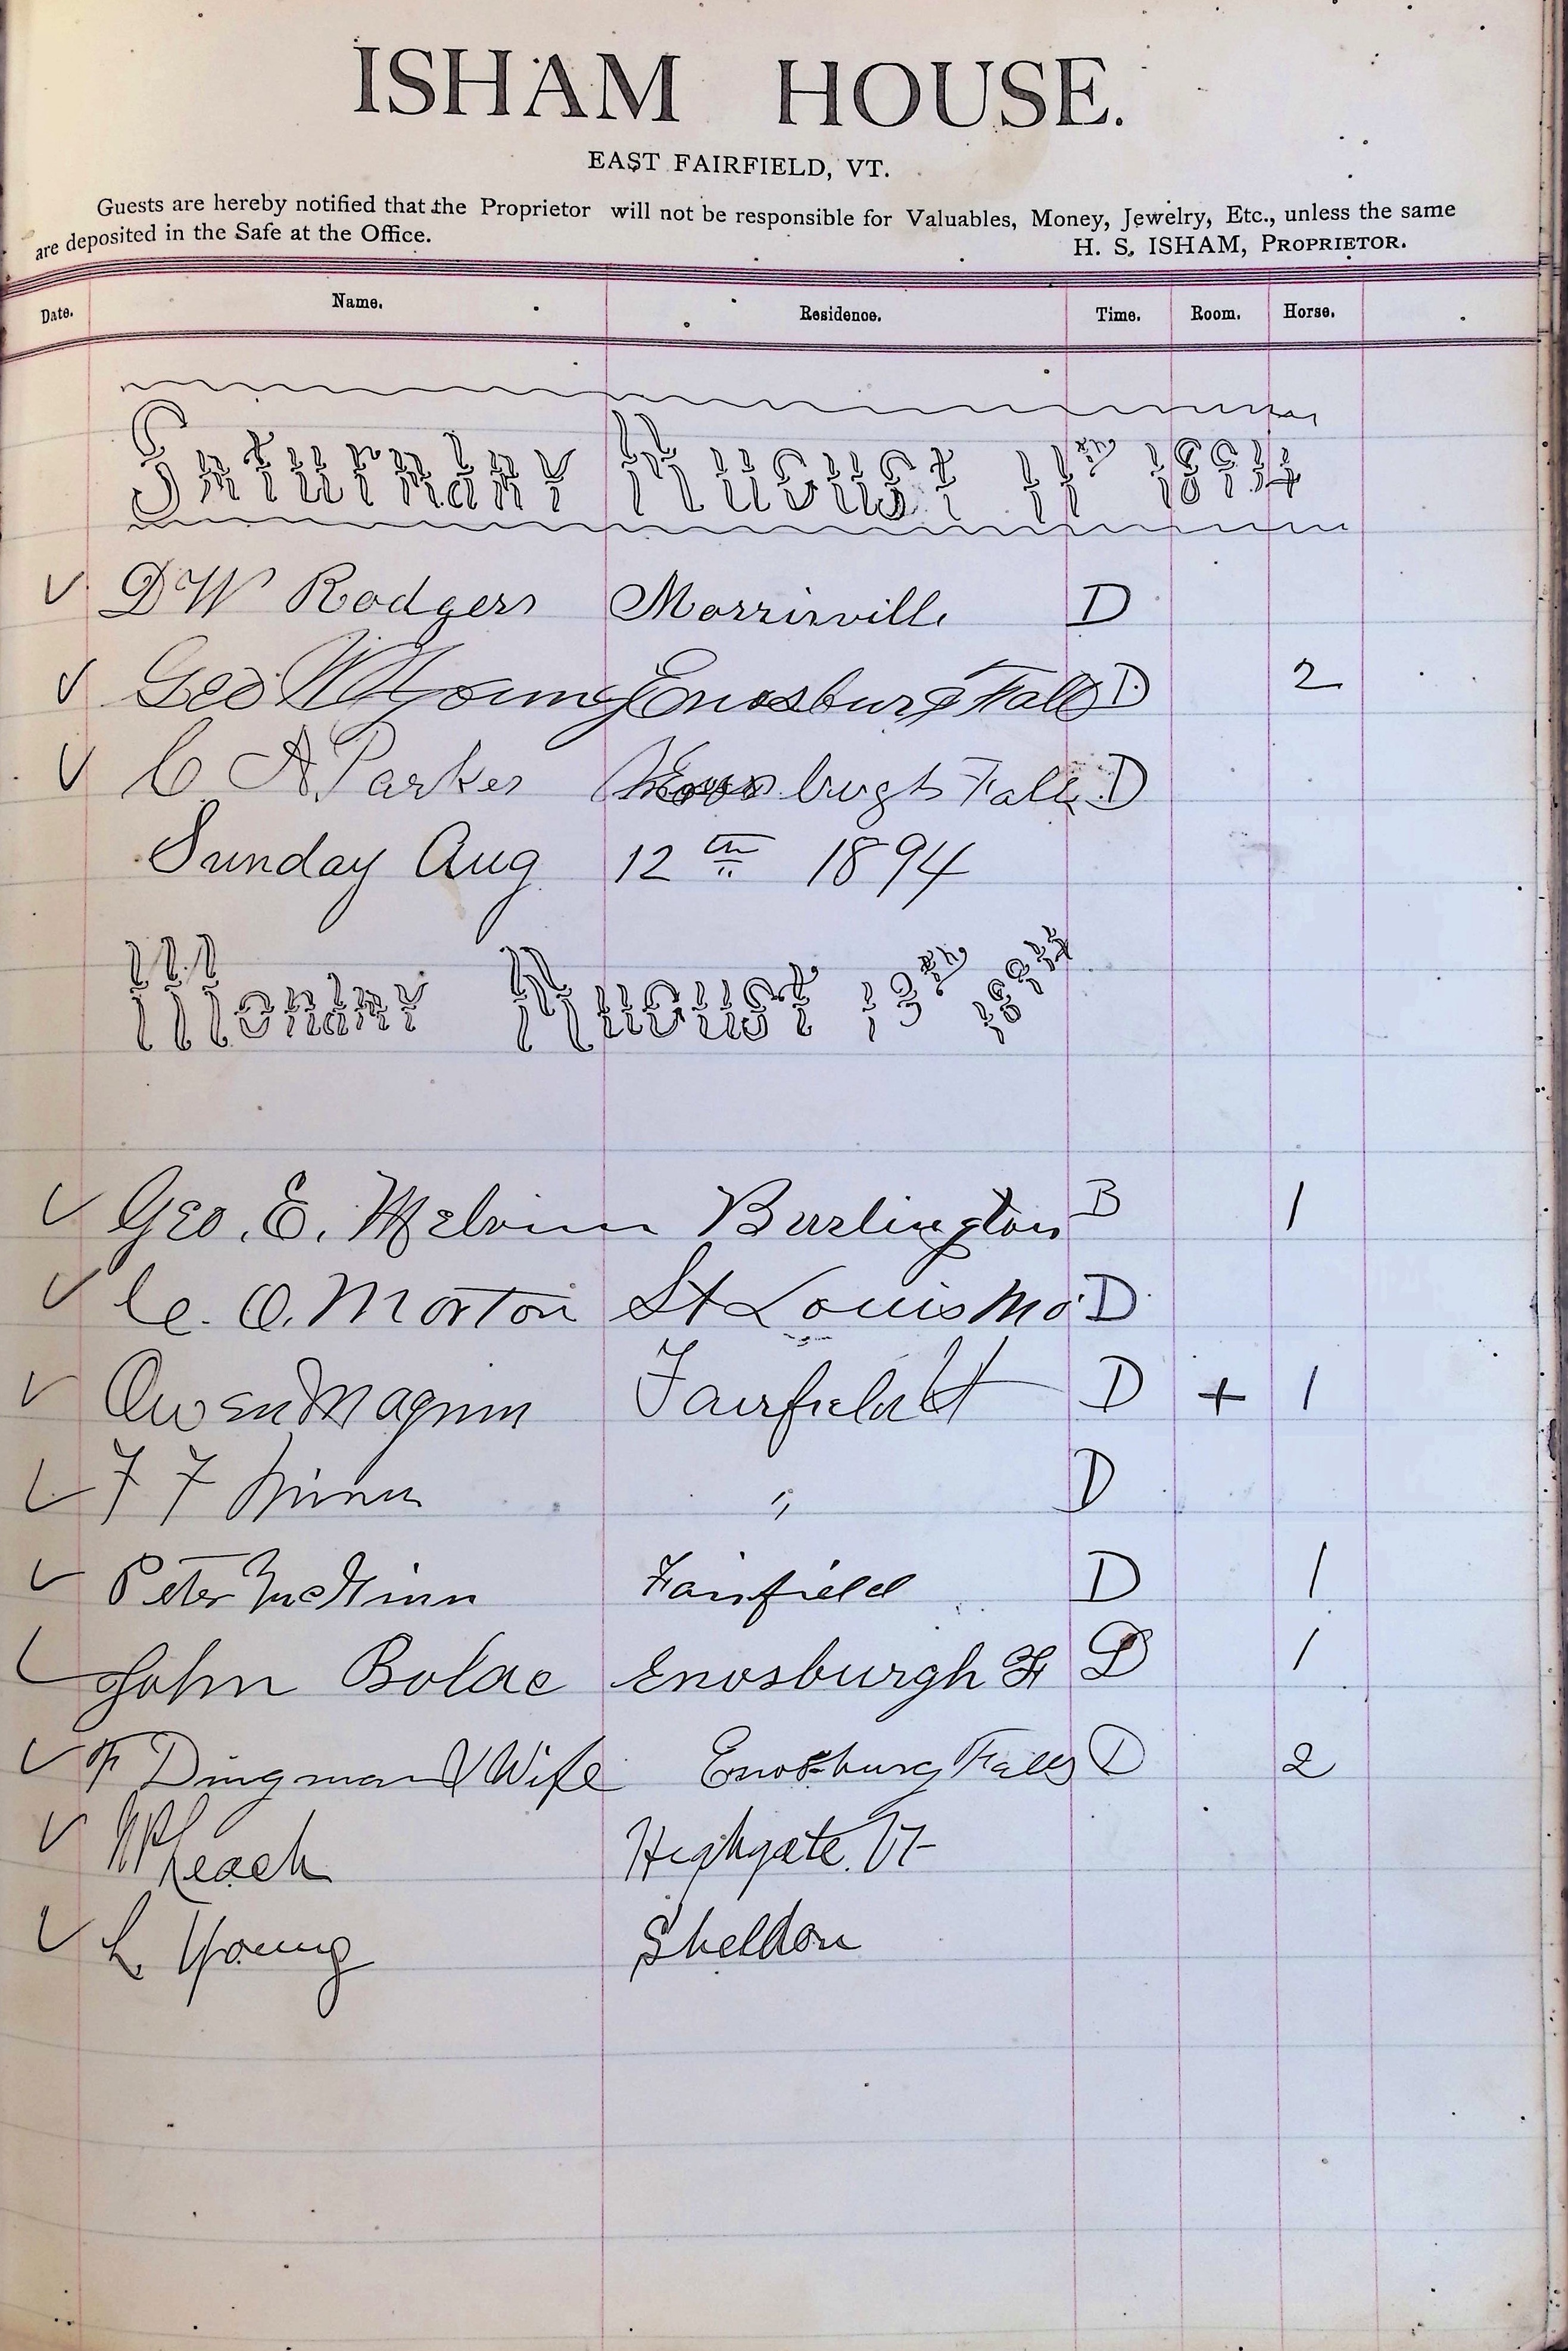 ISHAM HOUSE.
EAST FAIRFIELD, VT.
Guests are hereby notified that the Proprietor will not be responsible for Valuables, Money, Jewelry, Etc., unless the same
are deposited in the Safe at the Office.
H. S. ISHAM, PROPRIETOR.
Date. Name. Residence. Time. Room. Horse.
Saturday August 11th 1894
✓ D W Rodgers Morrisville D
✓ Geo W Young Enosburg Falls D 2
✓ C A Parker Enosburgh Falls D
Sunday Aug 12th 1894
Monday August 13th 1894
✓ Geo. E. Melvin Burlington B 1
✓ C. O. Morton St Louis Mo. D
✓ Owen Maginn Fairfield Vt D + 1
✓ F F " D
✓ Peter McGinn Fairfield D 1
✓ John Bolac Enosburgh F D 1
✓ F Dingman & Wife Enosburg Falls D 2
✓ Leach Highgate Vt
✓ L. Young Sheldon